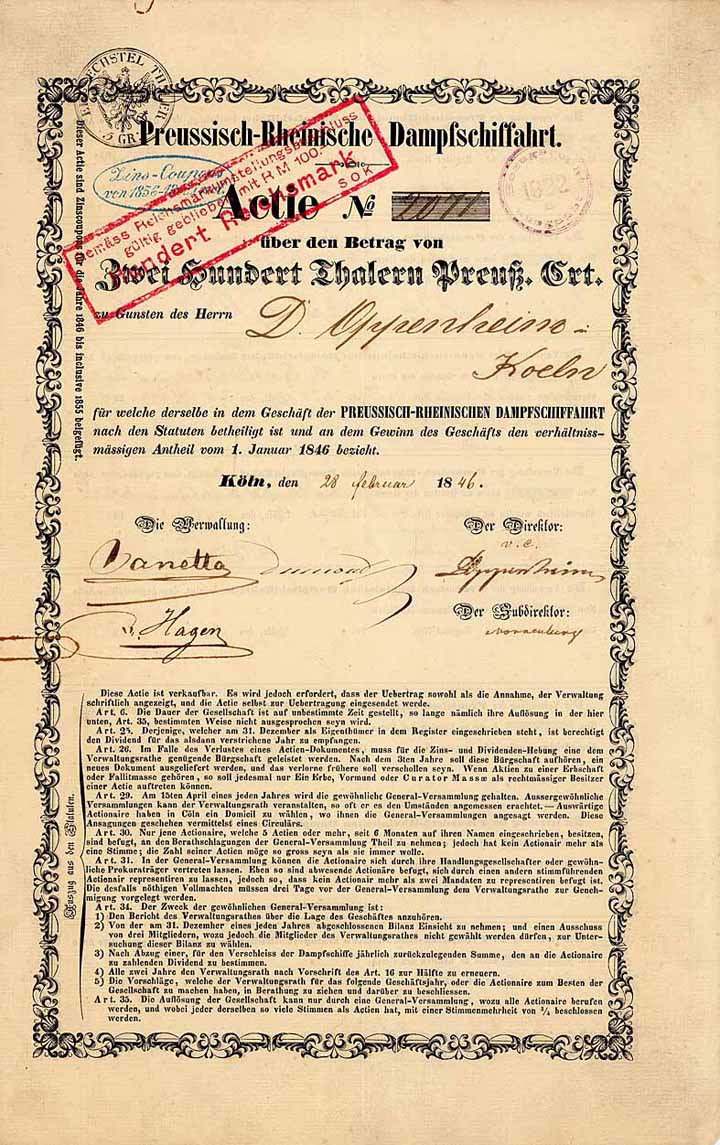 Preussisch-Rheinische Dampfschiffahrt.
Zins-Coupons
von 1856-
gemäss Reichsmarkumstellungsbeschluss
gültig geblieben mit RM 100.-
Hundert Reichsmark
SOK
Actie № 2071
über den Betrag von
Zwei Hundert Thalern Preuß. Crt.
zu Gunsten des Herrn D. Oppenheim -
Koeln
für welche derselbe in dem Geschäft der PREUSSISCH-RHEINISCHEN DAMPFSCHIFFAHRT
nach den Statuten betheiligt ist und an dem Gewinn des Geschäfts den verhältniss-
mässigen Antheil vom 1. Januar 1846 bezieht.
Köln, den 28 februar 1846.
Die Verwaltung: Der Direktor:
Oppenheim
Der Subdirektor:
v. Hagen
Dieser Actie sind Zinscoupons für die Jahre 1846 bis inclusive 1855 beigefügt.
Auszug aus den Statuten.
Diese Actie ist verkaufbar. Es wird jedoch erfordert, dass der Uebertrag sowohl als die Annahme, der Verwaltung
schriftlich angezeigt, und die Actie selbst zur Uebertragung eingesendet werde.
Art. 6. Die Dauer der Gesellschaft ist auf unbestimmte Zeit gestellt, so lange nämlich ihre Auflösung in der hier
unten, Art. 35, bestimmten Weise nicht ausgesprochen seyn wird.
Art. 23. Derjenige, welcher am 31. Dezember als Eigenthümer in dem Register eingeschrieben steht, ist berechtigt
den Dividend für das alsdann verstrichene Jahr zu empfangen.
Art. 26. Im Falle des Verlustes eines Actien-Dokumentes, muss für die Zins- und Dividenden-Hebung eine dem
Verwaltungsrathe genügende Bürgschaft geleistet werden. Nach dem 3ten Jahre soll diese Bürgschaft aufhören, ein
neues Dokument ausgeliefert werden, und das verlorne früher soll verschollen seyn. Wenn Aktien zu einer Erbschaft
oder Fallitmasse gehören, so soll jedesmal nur Ein Erbe, Vormund oder Curator Massæ als rechtmässiger Besitzer
einer Actie auftreten können.
Art. 29. Am 15ten April eines jeden Jahres wird die gewöhnliche General-Versammlung gehalten. Aussergewöhnliche
Versammlungen kann der Verwaltungsrath veranstalten, so oft er es den Umständen angemessen erachtet.—Auswärtige
Actionaire haben in Cöln ein Domicil zu wählen, wo ihnen die General-Versammlungen angesagt werden. Diese
Ansagungen geschehen vermittelst eines Circulärs.
Art. 30. Nur jene Actionaire, welche 5 Actien oder mehr, seit 6 Monaten auf ihren Namen eingeschrieben, besitzen,
sind befugt, an den Berathschlagungen der General-Versammlung Theil zu nehmen; jedoch hat kein Actionair mehr als
eine Stimme; die Zahl seiner Actien möge so gross seyn als sie immer wolle.
Art. 31. In der General-Versammlung können die Actionaire sich durch ihre Handlungsgesellschafter oder gewöhn-
liche Prokuraträger vertreten lassen. Eben so sind abwesende Actionäre befugt, sich durch einen andern stimmführenden
Actionair representiren zu lassen, jedoch so, dass kein Actionair mehr als zwei Mandaten zu representiren befugt ist.
Die desfalls nöthigen Vollmachten müssen drei Tage vor der General-Versammlung dem Verwaltungsrathe zur Geneh-
migung vorgelegt werden.
Art. 34. Der Zweck der gewöhnlichen General-Versammlung ist:
1) Den Bericht des Verwaltungsrathes über die Lage des Geschäftes anzuhören.
2) Von der am 31. Dezember eines jeden Jahres abgeschlossenen Bilanz Einsicht zu nehmen; und einen Ausschuss
von drei Mitgliedern, wozu jedoch die Mitglieder des Verwaltungsrathes nicht gewählt werden dürfen, zur Unter-
suchung dieser Bilanz zu wählen.
3) Nach Abzug einer, für den Verschleiss der Dampfschiffe jährlich zurückzulegenden Summe, den an die Actionaire
zu zahlenden Dividend zu bestimmen.
4) Alle zwei Jahre den Verwaltungsrath nach Vorschrift des Art. 16 zur Hälfte zu erneuern.
5) Die Vorschläge, welche der Verwaltungsrath für das folgende Geschäftsjahr, oder die Actionaire zum Besten der
Gesellschaft zu machen haben, in Berathung zu ziehen und darüber zu beschliessen.
Art. 35. Die Auflösung der Gesellschaft kann nur durch eine General-Versammlung, wozu alle Actionaire berufen
werden, und wobei jeder derselben so viele Stimmen als Actien hat, mit einer Stimmenmehrheit von ¾ beschlossen
werden.